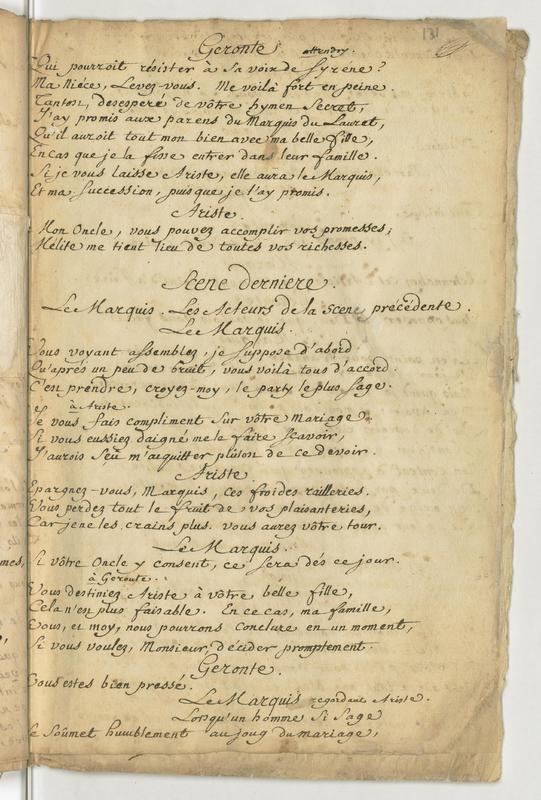 131
Geronte attendry.
Qui pourroit resister à sa voix de Syrene?
Ma Niéce, Levez-vous. Me voilà fort en peine.
Tantost, desesperé de vôtre hymen Secret,
J'ay promis aux parens du Marquis du Lauret,
Qu'il auroit tout mon bien avec ma belle fille,
En cas que je la fisse entrer dans leur famille.
Si je vous laisse Ariste, elle aura le Marquis,
Et ma Succession, puis que je l'ay promis.
Ariste.
Mon Oncle, vous pouvez accomplir vos promesses;
Mélite me tient lieu de toutes vos richesses.
Scene derniere.
Le Marquis. Les Acteurs de la Scene precedente.
Le Marquis.
Vous voyant assemblez, je suppose d'abord
Qu'aprés un peu de bruit, vous voilà tous d'accord.
C'est prendre, croyez-moy, le party le plus sage.
à Ariste.
Je vous fais compliment sur vôtre Mariage.
Si vous eussiez daigné me le faire sçavoir,
J'aurois sçu m'aquitter plûtost de ce devoir.
Ariste.
Epargnez-vous, Marquis, ces froides railleries.
Vous perdez tout le fruit de vos plaisanteries,
Car je ne les crains plus. vous aurez vôtre tour.
Le Marquis.
Si vôtre Oncle y consent, ce sera dés ce jour.
à Geronte.
Vous destiniez Ariste à vôtre belle fille,
Cela n'est plus faisable. En ce cas, ma famille,
Vous, et moy, nous pourrons conclure en un moment,
Si vous voulez, Monsieur, décider promptement.
Geronte.
Vous estes bien pressé.
Le Marquis regardant Ariste.
Lorsqu'un homme si sage
Se soûmet humblement au joug du mariage,